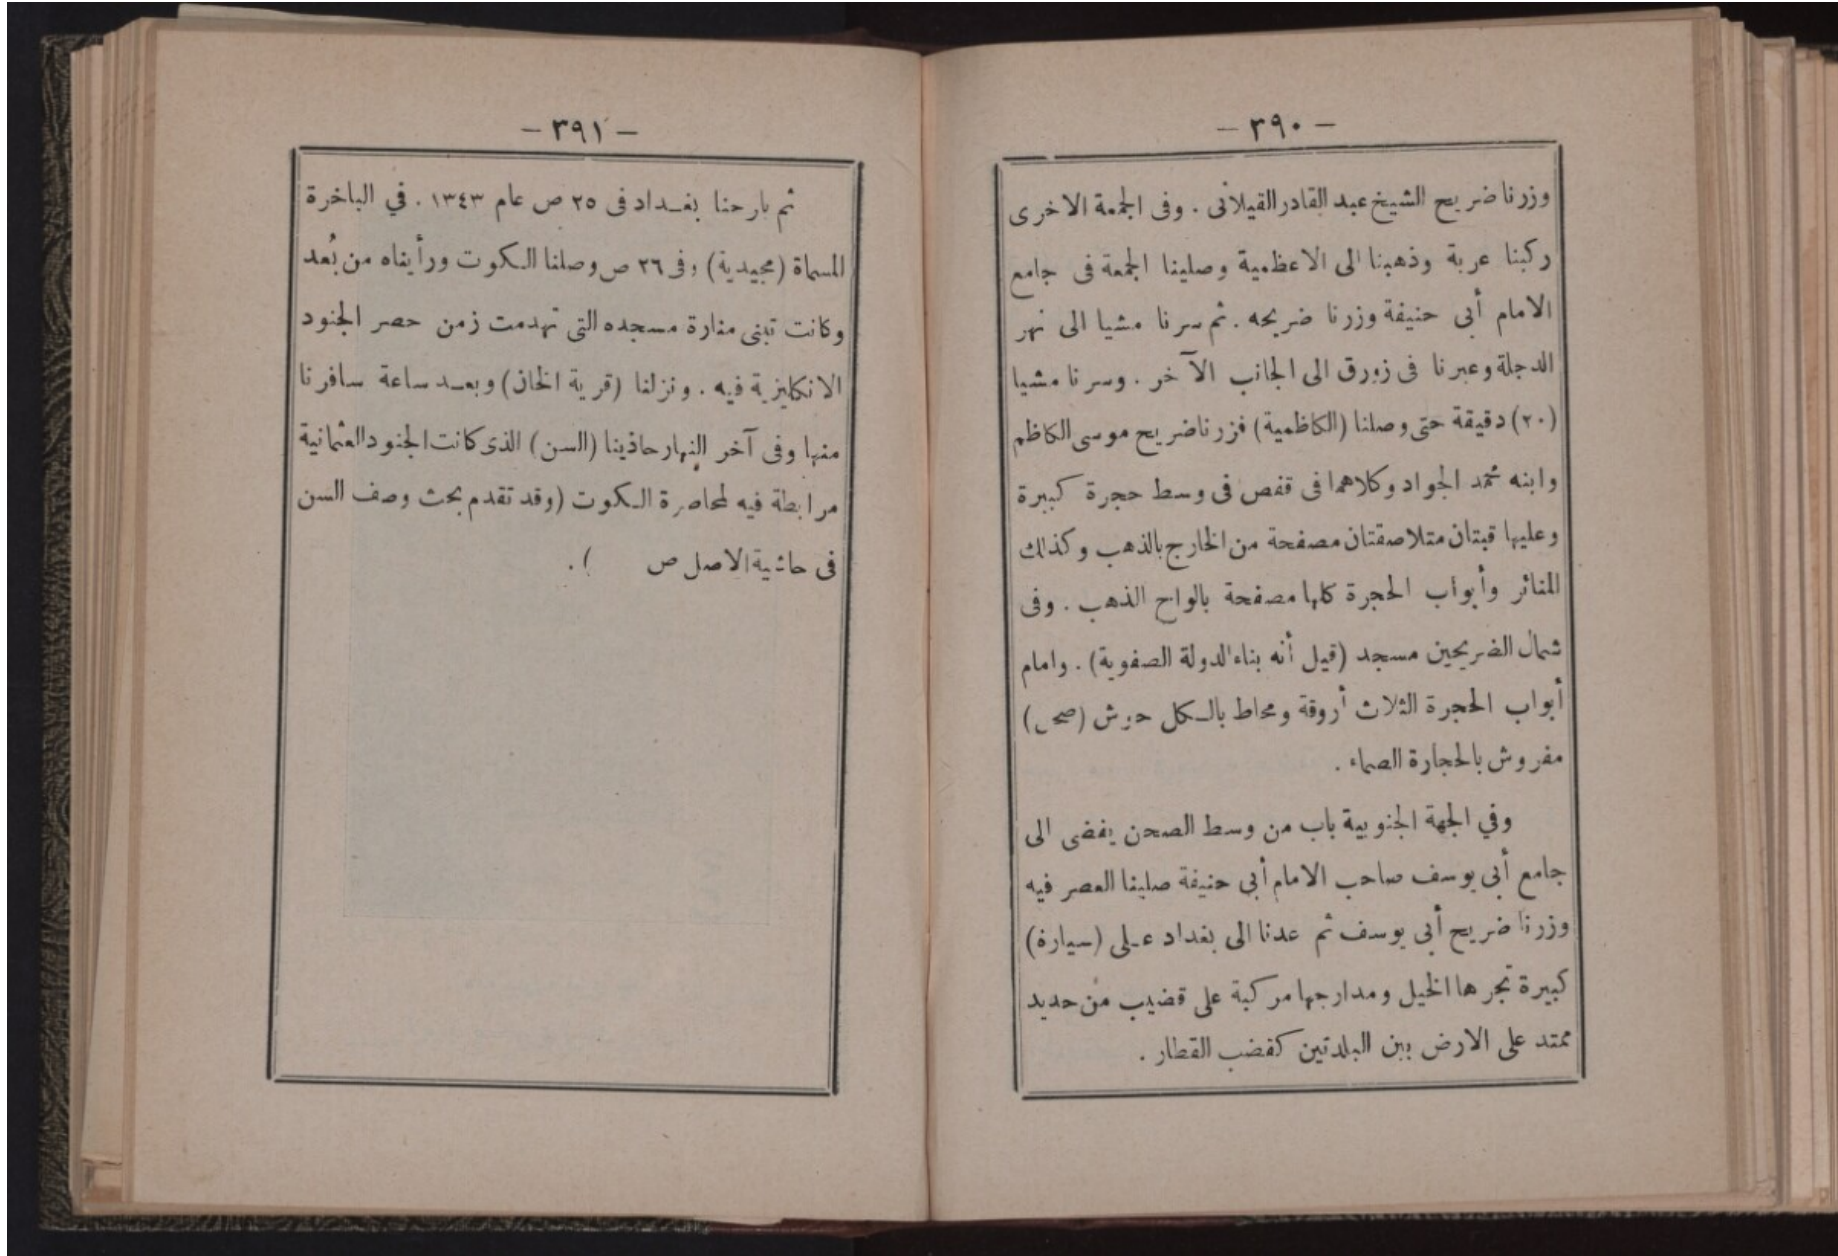 — ٣٩٠ —
وزرنا ضريح الشيخ عبد القادر القيلانى . وفى الجمعة الاخرى
ركبنا عربة وذهبنا الى الاعظمية وصلينا الجمعة فى جامع
الامام أبى حنيفة وزرنا ضريحه . ثم سرنا مشيا الى نهر
الدجلة وعبرنا فى زورق الى الجانب الآخر . وسرنا مشيا
(٢٠) دقيقة حتى وصلنا (الكاظمية) فزرنا ضريح موسى الكاظم
وابنه محمد الجواد وكلاهما فى قفص فى وسط حجرة كبيرة
وعليها قبتان متلاصقتان مصفحة من الخارج بالذهب وكذلك
المنائر وأبواب الحجرة كلها مصفحة بالواح الذهب . وفى
شمال الضريحين مسجد (قيل أنه بناء الدولة الصفوية) . وامام
أبواب الحجرة الثلاث أروقة ومحاط بالكل حوش (صحن)
مفروش بالحجارة الصماء .
وفي الجهة الجنوبية باب من وسط الصحن يفضى الى
جامع أبى يوسف صاحب الامام أبي حنيفة صلينا العصر فيه
وزرنا ضريح أبى يوسف ثم عدنا الى بغداد على (سيارة)
كبيرة تجرها الخيل ومدارجها مركبة على قضيب من حديد
ممتد على الارض بين البلدتين كقضب القطار .
— ٣٩١ —
ثم بارحنا بغداد فى ٢٥ ص عام ١٣٤٣ . في الباخرة
المسماة (مجيدية) وفى ٢٦ ص وصلنا الكوت ورأيناه من بُعد
وكانت تبنى منارة مسجده التى تهدمت زمن حصر الجنود
الانكليزية فيه . ونزلنا (قرية الخان) وبعد ساعة سافرنا
منها وفى آخر النهار حاذينا (السن) الذى كانت الجنود العثمانية
مرابطة فيه لمحاصرة الكوت (وقد تقدم بحث وصف السن
فى حاشية الاصل ص ) .